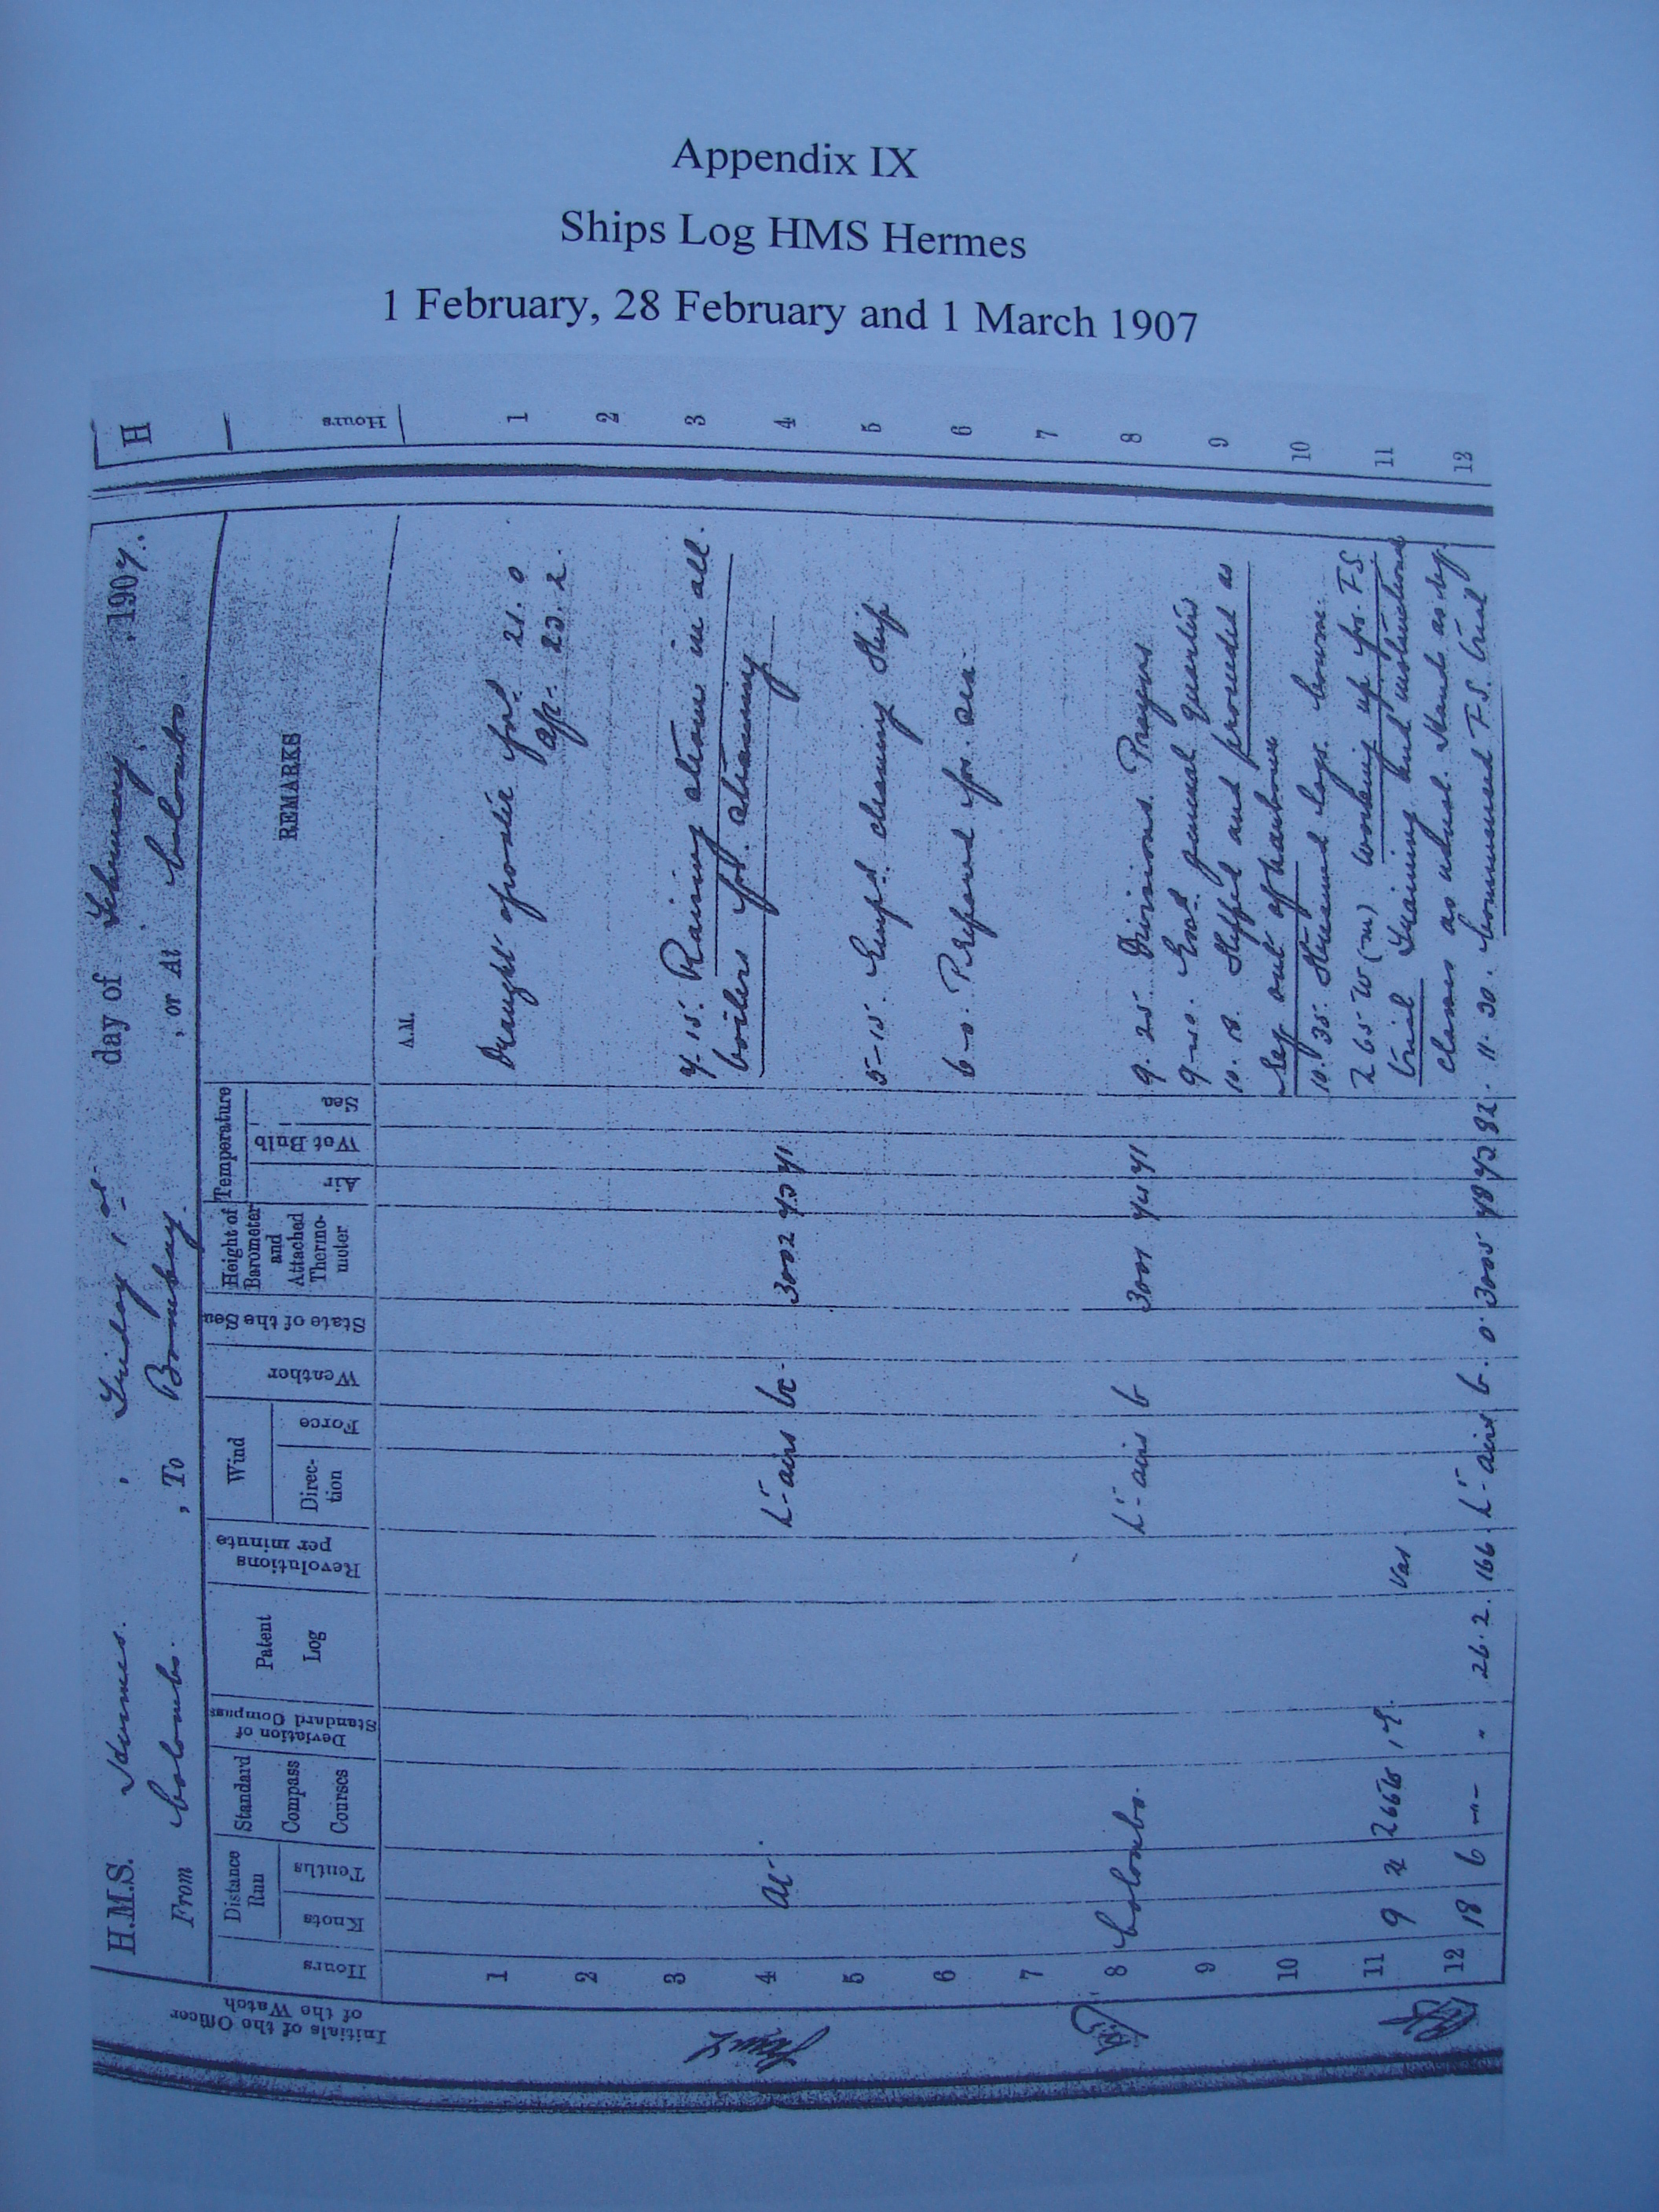 Appendix IX
Ships Log HMS Hermes
1 February, 28 February and 1 March 1907
H.M.S. Hermes. , Friday 1st day of February , 1907.
From Colombo. , To Bombay. , or At Colombo
H
Initials of the Officer of the Watch
Hours
Distance Run
Knots
Tenths
Standard Compass Courses
Deviation of Standard Compass
Patent Log
Revolutions per minute
Wind
Direc-tion
Force
Weather
State of the Sea
Height of Barometer and Attached Thermo-meter
Temperature
Air
Wet Bulb
Sea
REMARKS
Hours
A.M.
1 Draught forward 21.0 1
2 aft. 23.2. 2
3 7.15. Raising steam in all. 3
4 At Lt airs bc. 3002 73 71 boilers for steaming 4
5 5-15. Empd. cleaning ship 5
6 6-0. Prepared for sea. 6
7 7
8 Colombo. Lt airs b 3001 74 71 9.25. Divisions. Prayers 8
9-50. general quarters
9 10.18. Slipped and proceeded as 9
req out of harbour
10 10.35. Streamed logs. Course. 10
265 W (m) working up for F.S.
11 9 Var trial Training and instructional 11
classes as usual. Hands as req
12 18 6 26.2. 166 Lt airs b. 0. 3005 78 73 82. 11.30. Commenced F.S. trial 12